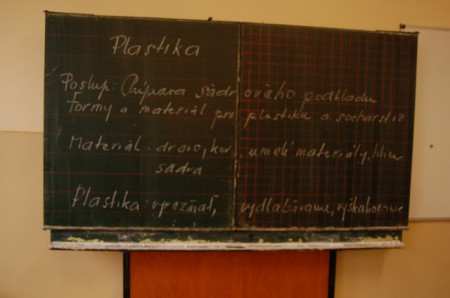 Plastika
Postup: Príprava sadrového podkladu
formy a materiál pre plastiku a socharstvo
Materiál: drevo, kov, umelé materiály, hlina
sadra
Plastika: vyrezávať, vydlabávame, vyškabovanie